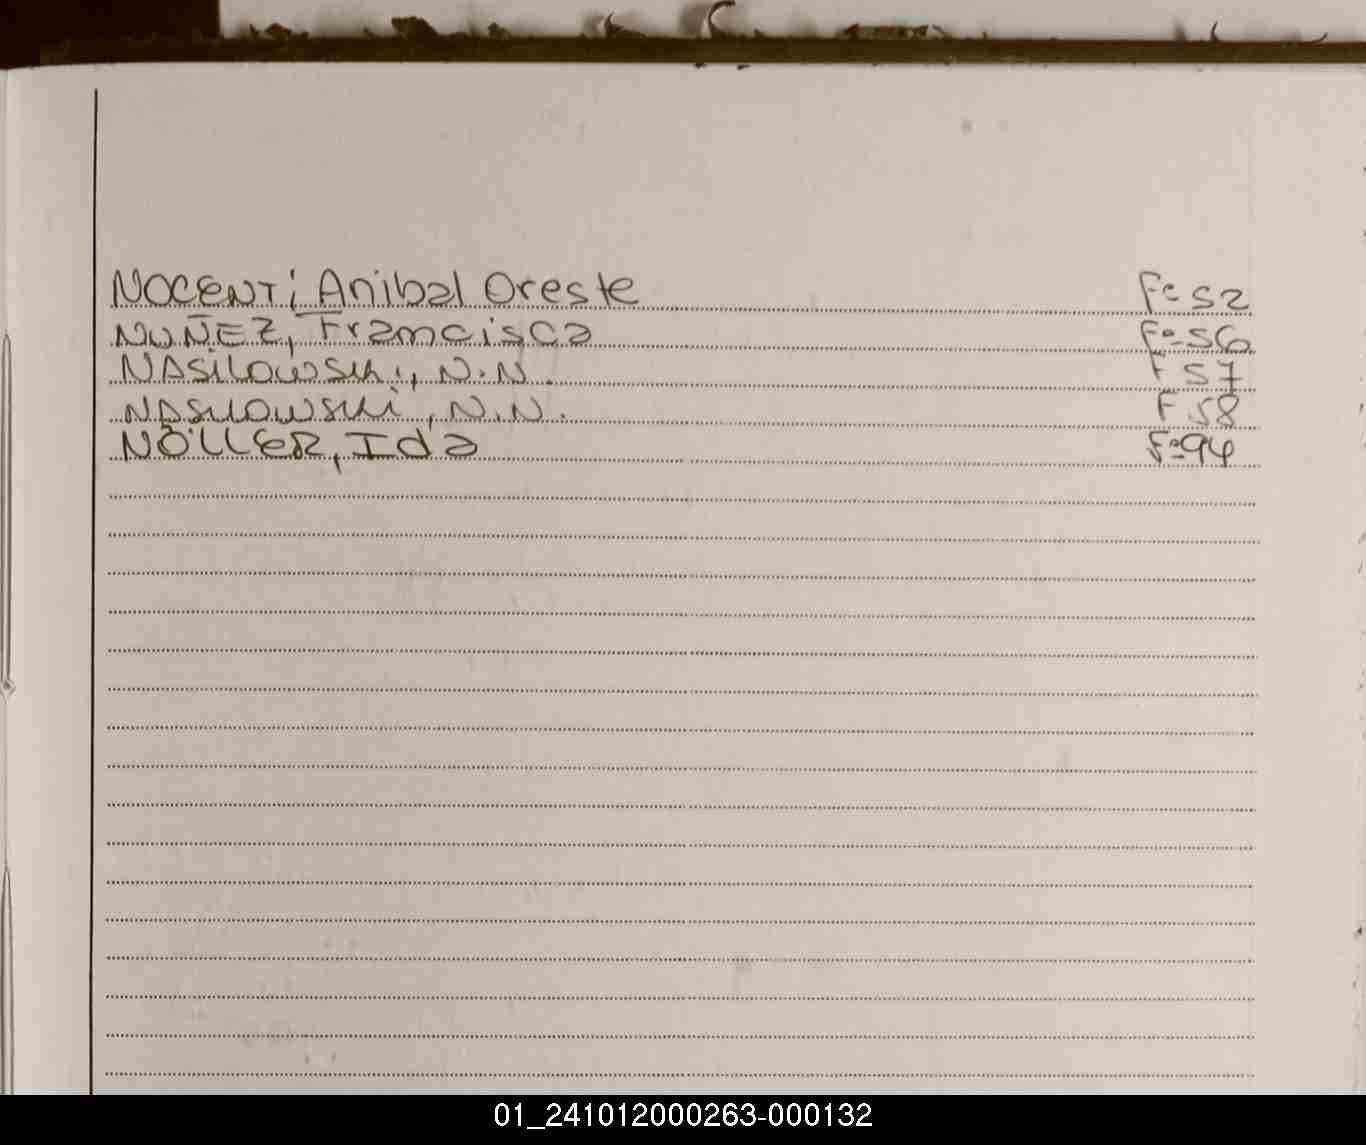 NOCENTi, Anibal Oreste Fº 52
NUÑEZ, Francisca Fº 56
NASiLOWSKi, N.N. F 57
NASiLOWSKi, N.N. F 58
NÖLLER, Ida Fº 94
01_241012000263-000132